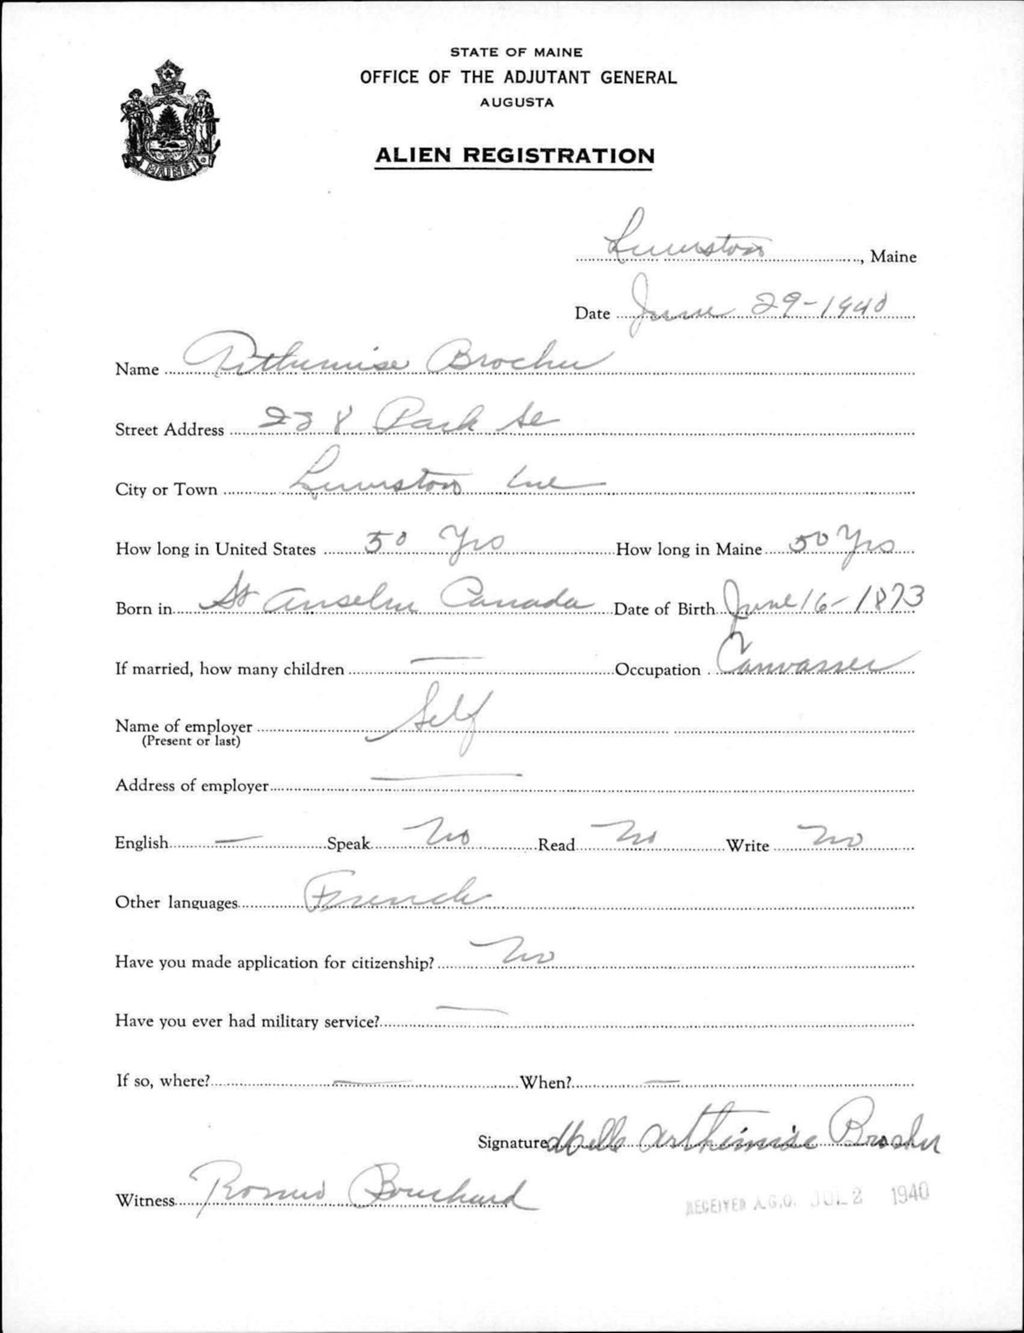 STATE OF MAINE
OFFICE OF THE ADJUTANT GENERAL
AUGUSTA
MAINE
ALIEN REGISTRATION
Lewiston, Maine
Date June 29-1940
Name Arthemise Brochu
Street Address 238 Park St
City or Town Lewiston Me
How long in United States 50 Yrs How long in Maine 50 Yrs
Born in St Anselm Canada Date of Birth June 16-1873
If married, how many children — Occupation Canvasser
Name of employer Self
(Present or last)
Address of employer —
English — Speak No Read No Write No
Other languages French
Have you made application for citizenship? No
Have you ever had military service? —
If so, where? — When? —
Signature Mlle Arthémise Brochu
Witness Romeo Bouchard
RECEIVED A.G.O. JUL 2 1940